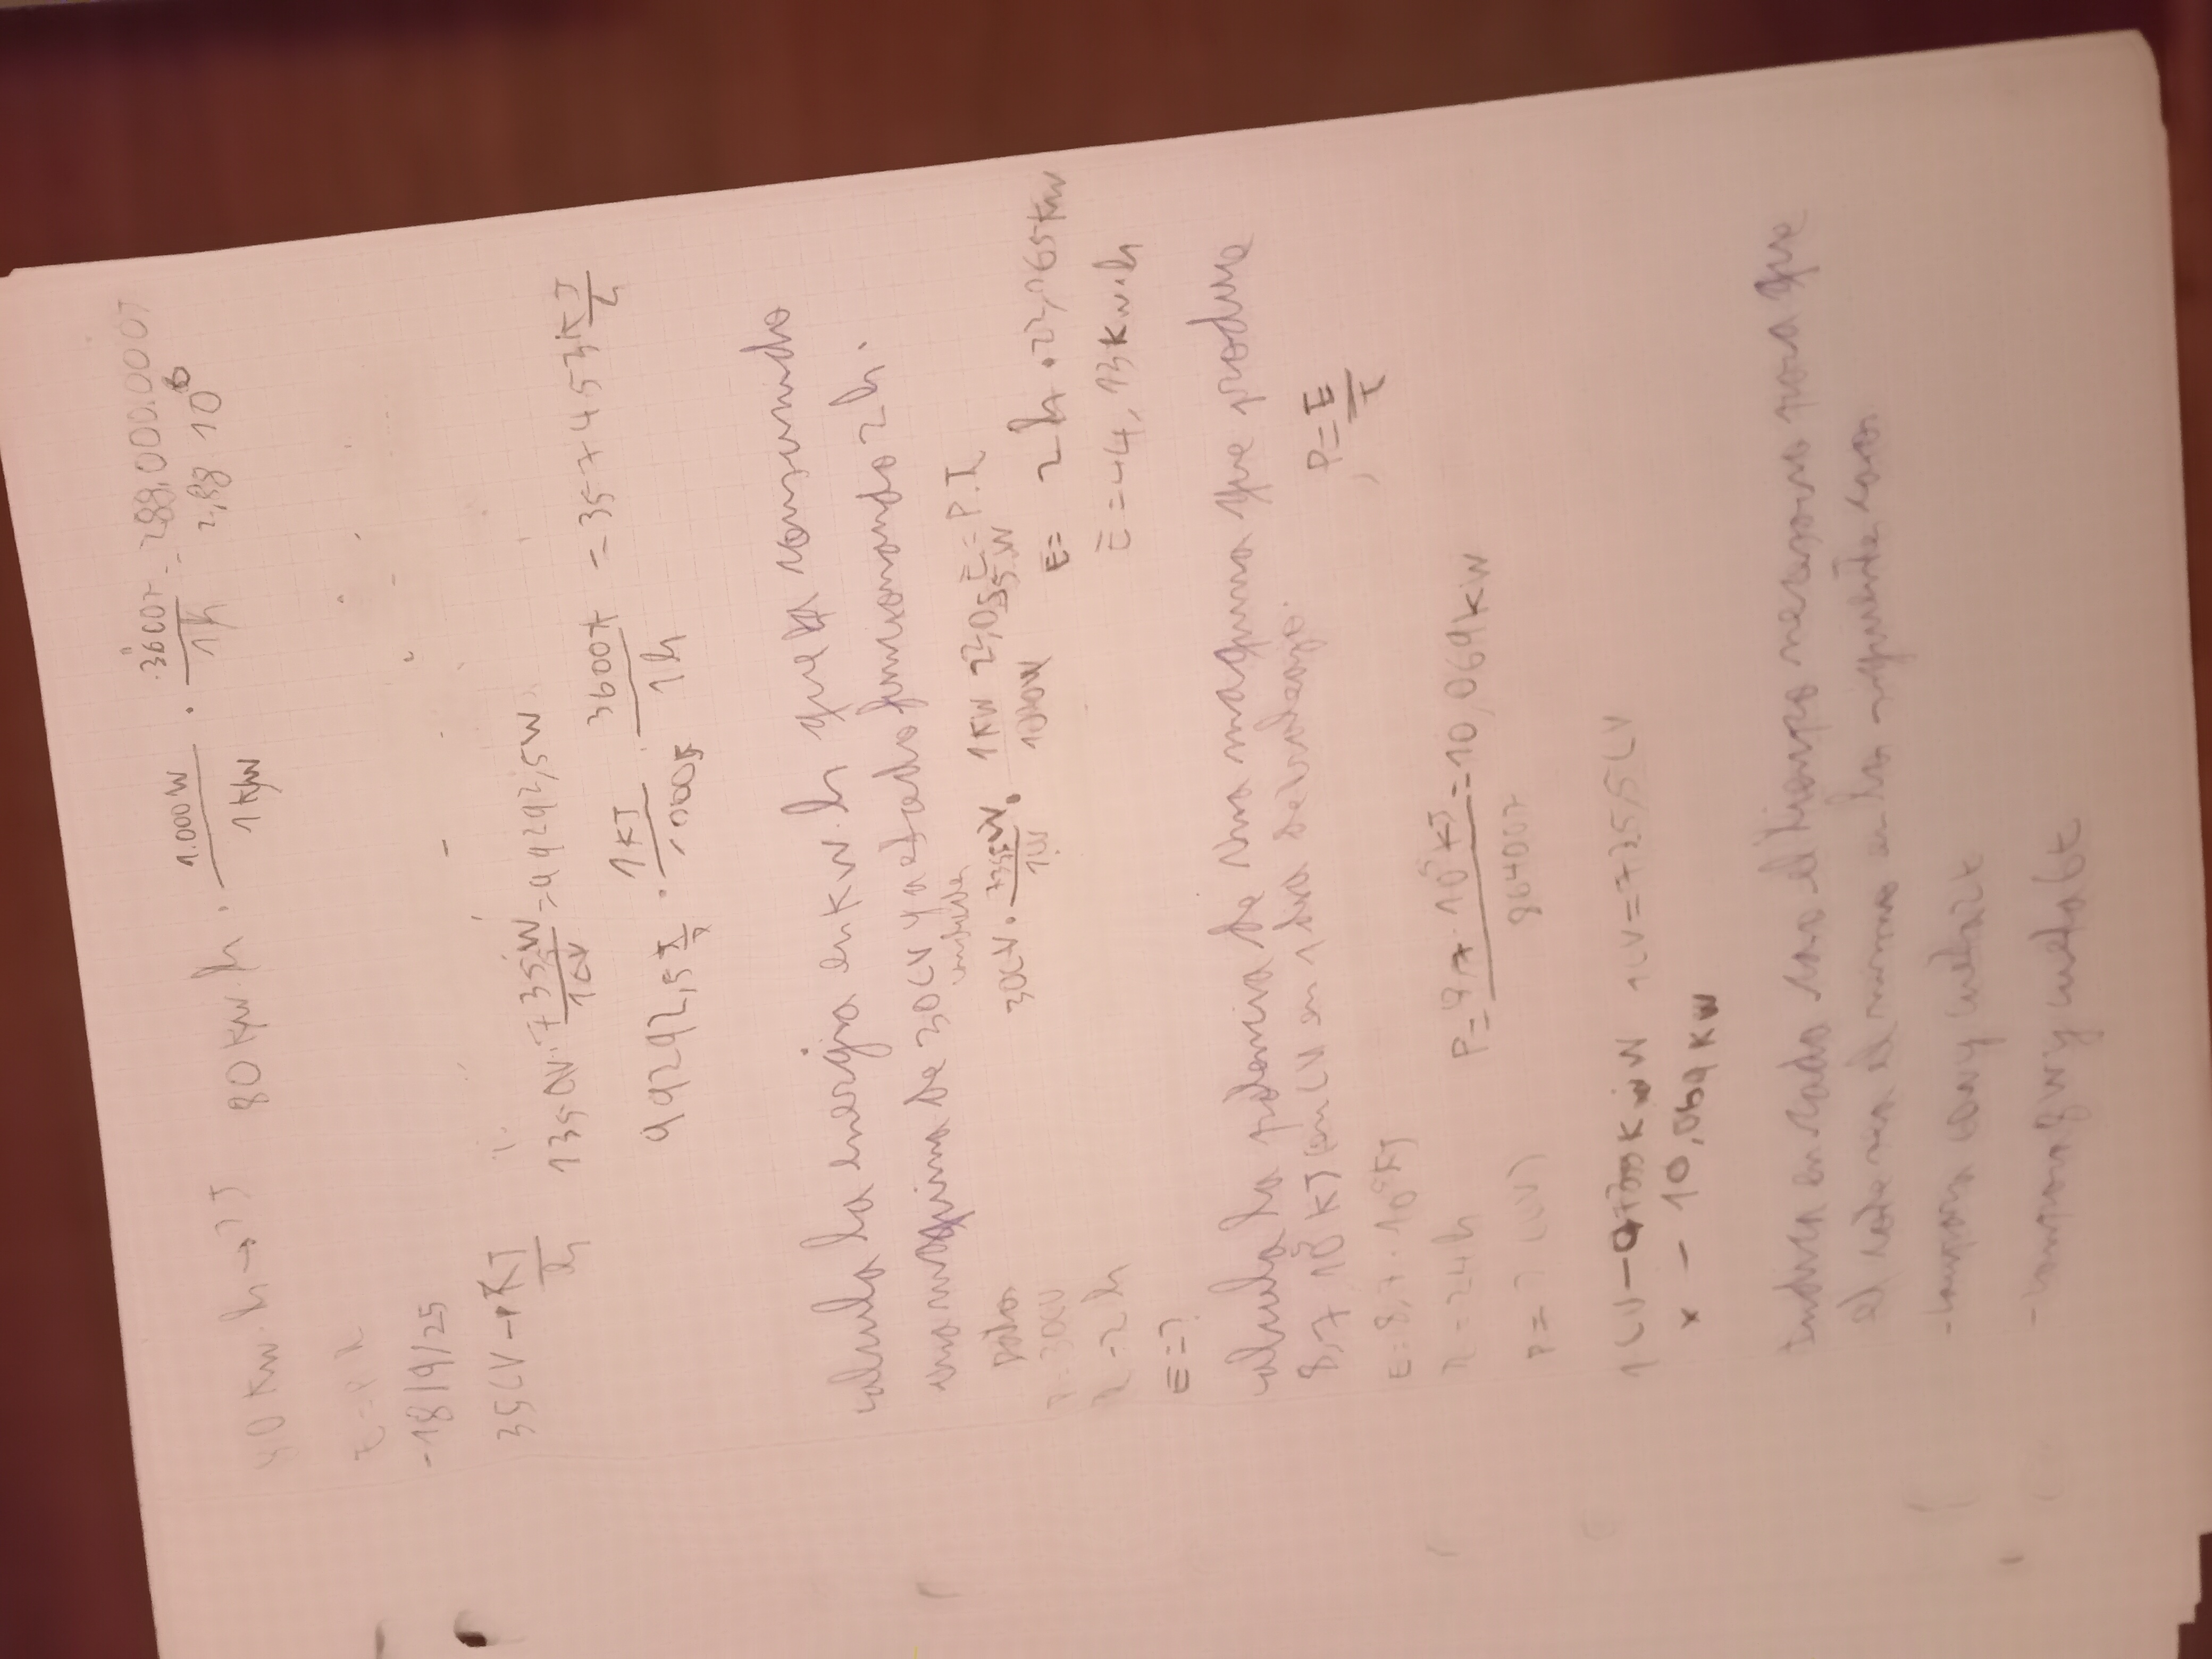 80 Kw.h → ? J 80 Kw.h . 1.000 W / 1 Kw . 3600 s / 1 h = 288.000.000 J
2,88 10^8
E = P t
-18/9/25
135 CV → KJ / h
135 CV . 735,5 W / 1 CV = 99292,5 W
99292,5 J/s . 1 KJ / 1000 J . 3600 s / 1 h = 357453 KJ / h
calcula la energia en Kw.h que ha consumido
una maquina de 30 CV y a estado funcionando 2 h.
Datos
unidades
30 CV . 735,5 W / 1 CV . 1 KW / 1000 W 22,065 W E = P.t
P = 30 CV
E = 2 h . 22,065 Kw
t = 2 h
E = 44,13 Kw.h
E = ?
calcula la potencia de una maquina que produce
8,7 10^5 KJ en CV en 1 dia de trabajo.
P = E / t
E = 8,7 . 10^5 KJ
t = 24 h
P = 8,7 . 10^5 KJ / 86400 s = 10,069 KW
P = ? (CV)
1 CV — KW 1 CV = 735,5 CV
x — 10,069 KW
Indica en cada caso el tiempo necesario para que
el coste sea el mismo en los siguientes casos